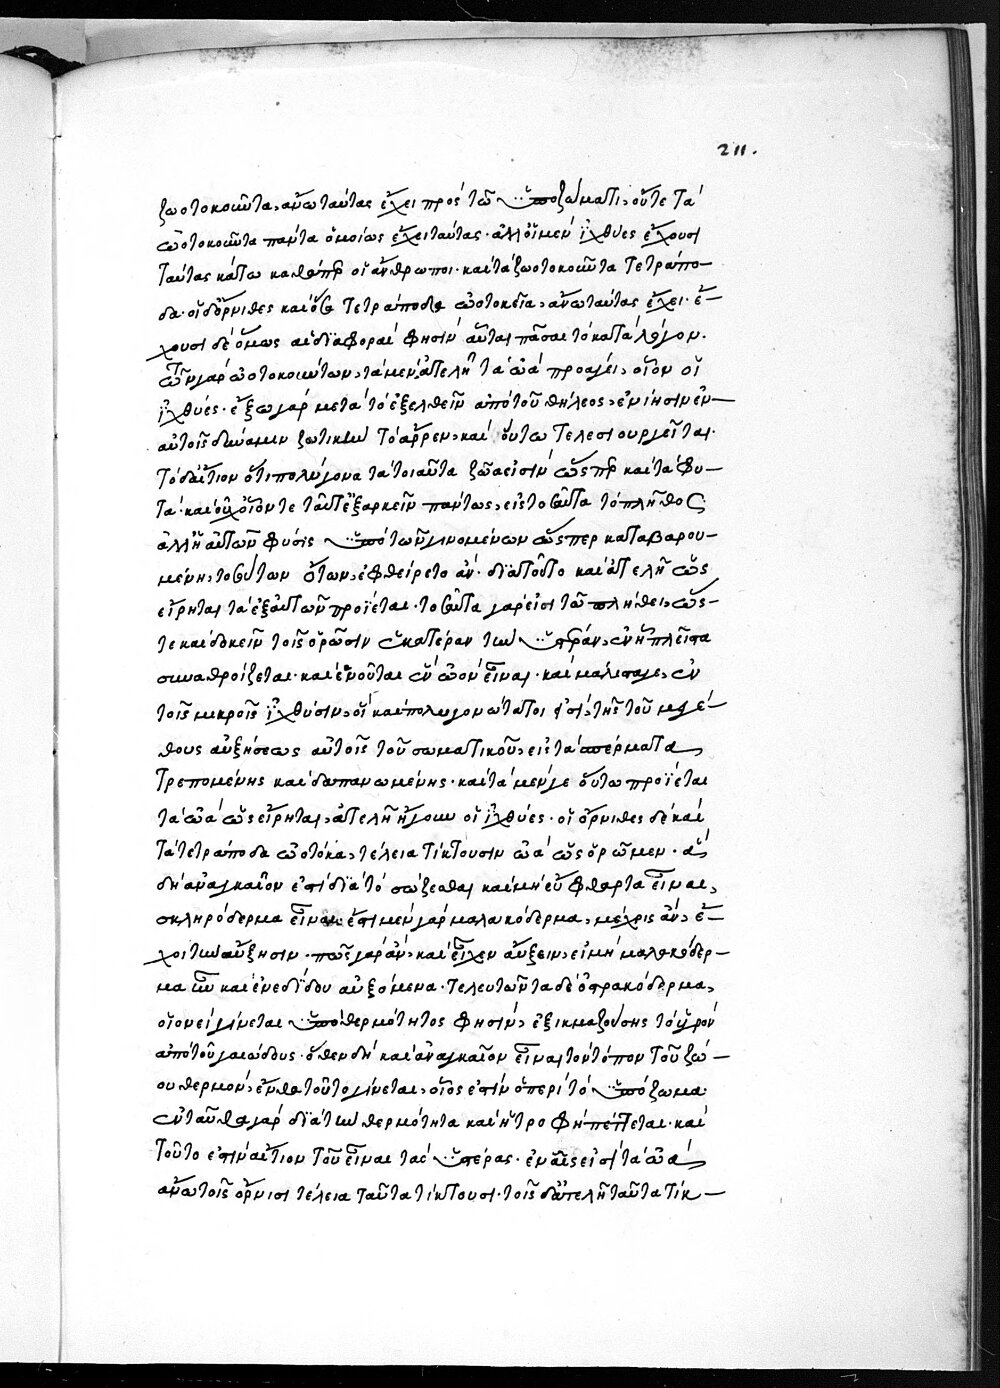 211.
ζωοτοκοῦντα, ἄνω ταύτας ἔχει πρὸς τῶ ὑποζώματι, οὔτε τὰ
ὠοτοκοῦντα πάντα ὁμοίως ἔχει ταύτας· ἀλλ' οἱ μὲν ἰχθύες ἔχουσι
ταύτας κάτω καθάπερ οἱ ἄνθρωποι· καὶ τὰ ζωοτοκοῦντα τετράπο-
δα· οἱ δ' ὄρνιθες καὶ ὅσα τετράποδα ὠοτοκεῖ, ἄνω ταύτας ἔχει· ἔ-
χουσι δὲ ὅμως αἱ διαφοραί φησιν αὗται πᾶσαι τὸ κατὰ λόγον.
τῶν γὰρ ὠοτοκούντων, τὰ μὲν ἀτελῆ τὰ ὠὰ προάγει, οἷον οἱ
ἰχθύες· ἔξω γὰρ μετὰ τὸ ἐξελθεῖν ἀπὸ τοῦ θήλεος, ἐνίησιν ἐν-
αὐτοῖς δύναμιν ζωτικὴν τὸ ἄρρεν, καὶ οὕτω τελεσιουργεῖται·
τὸ δ' αἴτιον ὅτι πολύγονα τὰ τοιαῦτα ζῶα εἰσὶν ὥσπερ καὶ τὰ φυ-
τά· καὶ οὐχ οἷόν τε ταῦτ' ἐξαρκεῖν πάντως, εἰς τοσαῦτα τὸ πλῆθος
ἀλλ' ἡ αὐτῶν φύσις ὑπὸ τῶν γινομένων ὥσπερ καταβαρου-
μένη, τοσούτων ὄντων, ἐφθείρετο ἄν· διὰ τοῦτο καὶ ἀτελῆ ὡς
εἴρηται τὰ ἐξ αὐτῶν προΐεται· τοσαῦτα γάρ εἰσι τῶ πλήθει, ὥσ-
τε καὶ δοκεῖν τοῖς ὁρῶσιν ἑκατέραν τὴν ὑστέραν, ἐν ᾗ πλεῖστα
συναθροίζεται· καὶ ἑνοῦται ἓν ὠὸν εἶναι· καὶ μάλιστά γε, ἐν
τοῖς μικροῖς ἰχθύσιν, οἳ καὶ πολυγονώτατοι εἰσὶ, τῆς τοῦ μεγέ-
θους αὐξήσεως αὐτοῖς τοῦ σωματικοῦ, εἰς τὰ σπέρματα
τρεπομένης καὶ δαπανωμένης· καὶ τὰ μέν γε οὕτω προΐεται
τὰ ὠὰ ὡς εἴρηται, ἀτελῆ ἤγουν οἱ ἰχθύες· οἱ ὄρνιθες δὲ καὶ
τὰ τετράποδα ὠοτόκα, τέλεια τίκτουσιν ὠὰ ὡς ὁρῶμεν· ἃ
δὴ ἀναγκαῖον ἐστὶ διὰ τὸ σώζεσθαι καὶ μὴ εὔφθαρτα εἶναι,
σκληρόδερμα εἶναι· ἔστι μὲν γὰρ μαλακόδερμα, μέχρις ἂν, ἔ-
χοι τὴν αὔξησιν· πῶς γὰρ ἂν, καὶ εἶχεν αὔξειν, εἰ μὴ μαλακόδερ-
μα ἦν καὶ ἐνεδίδου αὐξόμενα· τελευτῶντα δὲ ὀστρακόδερμα,
οἱονεὶ γίνεται ὑπὸ θερμότητός φησιν, ἐξικμαζούσης τὸ ὑγρὸν
ἀπὸ τοῦ γαιώδους· ὅθεν δὴ καὶ ἀναγκαῖον εἶναι τὸν τόπον τοῦ ζώ-
ου θερμὸν, ἔνθα τοῦτο γίνεται, οἷος ἐστὶν ὁ περὶ τὸ ὑπόζωμα·
ἐνταῦθα γὰρ διὰ τὴν θερμότητα καὶ ἡ τροφὴ πέττεται· καὶ
τοῦτο ἐστὶν αἴτιον τοῦ εἶναι τὰς ὑστέρας· ἐν αἷς εἰσὶ τὰ ὠὰ
ἄνω τοῖς ὄρνισι τέλεια ταῦτα τίκτουσι· τοῖς δ' ἀτελῆ ταῦτα τίκ-